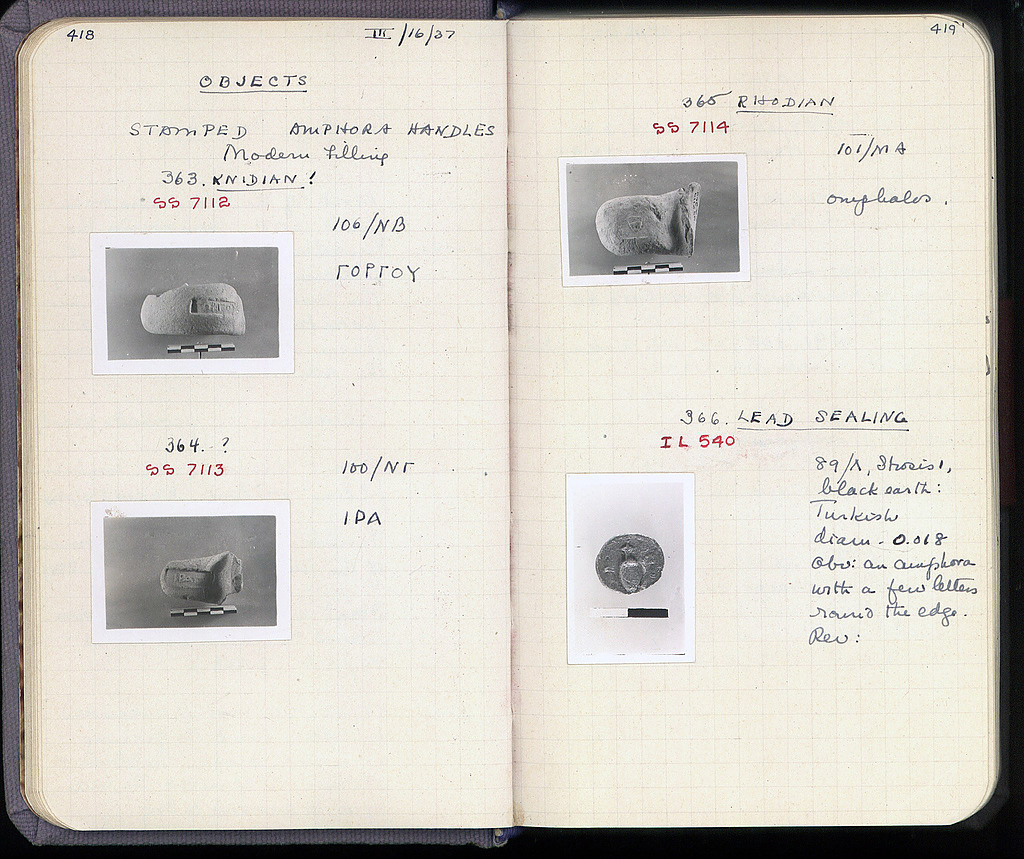 418
III/16/37
OBJECTS
STAMPED AMPHORA HANDLES
Modern filling
363. KNIDIAN!
SS 7112
106/ΝΒ
ΓΟΡΓΟΥ
364. ?
SS 7113
100/ΝΓ
ΙΡΑ
419
365 RHODIAN
SS 7114
101/ΜΑ
omphalos.
366. LEAD SEALING
IL 540
89/Λ, Strosis 1,
black earth:
Turkish
diam. 0.018
Obv: an amphora
with a few letters
round the edge.
Rev: